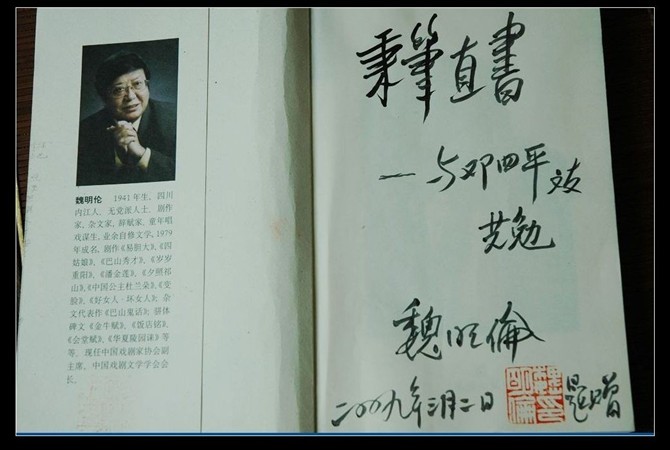 魏明伦 1941年生，四川
内江人。无党派人士。剧作
家，杂文家，辞赋家。童年唱
戏谋生，业余自修文学，1979
年成名。剧作《易胆大》、《四
姑娘》、《巴山秀才》、《岁岁
重阳》、《潘金莲》、《夕照祁
山》、《中国公主杜兰朵》、《变
脸》、《好女人·坏女人》；杂
文代表作《巴山鬼话》；骈体
碑文《金牛赋》、《饭店铭》、
《会堂赋》、《华夏陵园诔》等
等。现任中国戏剧家协会副
主席，中国戏剧文学学会会
长。
秉筆直書
—与邓四平友
共勉
魏明倫
二00九年三月二日
魏明倫印
題贈